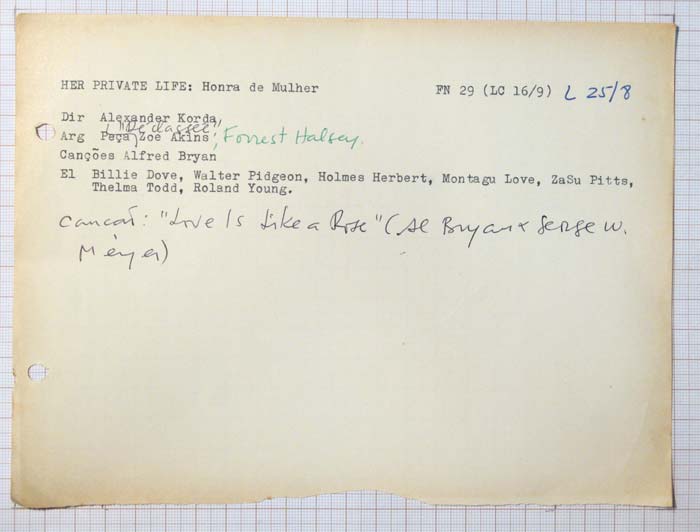 HER PRIVATE LIFE: Honra de Mulher FN 29 (LC 16/9) L 25/8
Dir Alexander Korda,
"Déclassée",
Arg Peça Zoe Akins; Forrest Halsey.
Canções Alfred Bryan
El Billie Dove, Walter Pidgeon, Holmes Herbert, Montagu Love, ZaSu Pitts,
Thelma Todd, Roland Young.
Canção: "Love Is Like a Rose" (Al Bryan & George W.
Meyer)